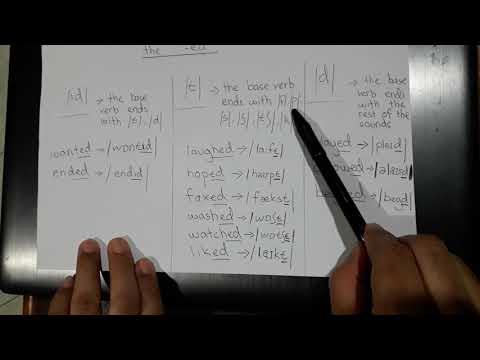 the -ed
|ɪd| → the base
verb ends
with |t|, |d|
wanted → |wɒntɪd|
ended → |endɪd|
|t| → the base verb
ends with |f|, |p|
|s|, |ʃ|, |tʃ|, |k|
laughed → |lɑːft|
hoped → |həʊpt|
faxed → |fækst|
washed → |wɒʃt|
watched → |wɒtʃt|
liked → |laɪkt|
|d| → the base
verb ends
with the
rest of the
sounds
ayed → |pleɪd|
owed → |əlaʊd|